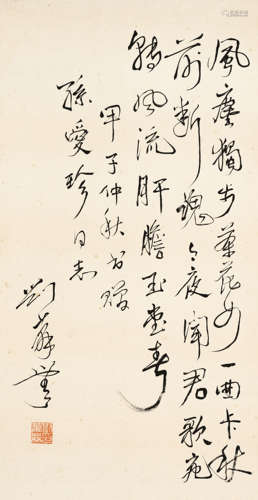 風塵獨步葉花如一曲卡秋
前斷魂今夜聞君歌宛
轉風流肝膽玉堂春
甲子仲秋書贈
孫愛珍同志
劉